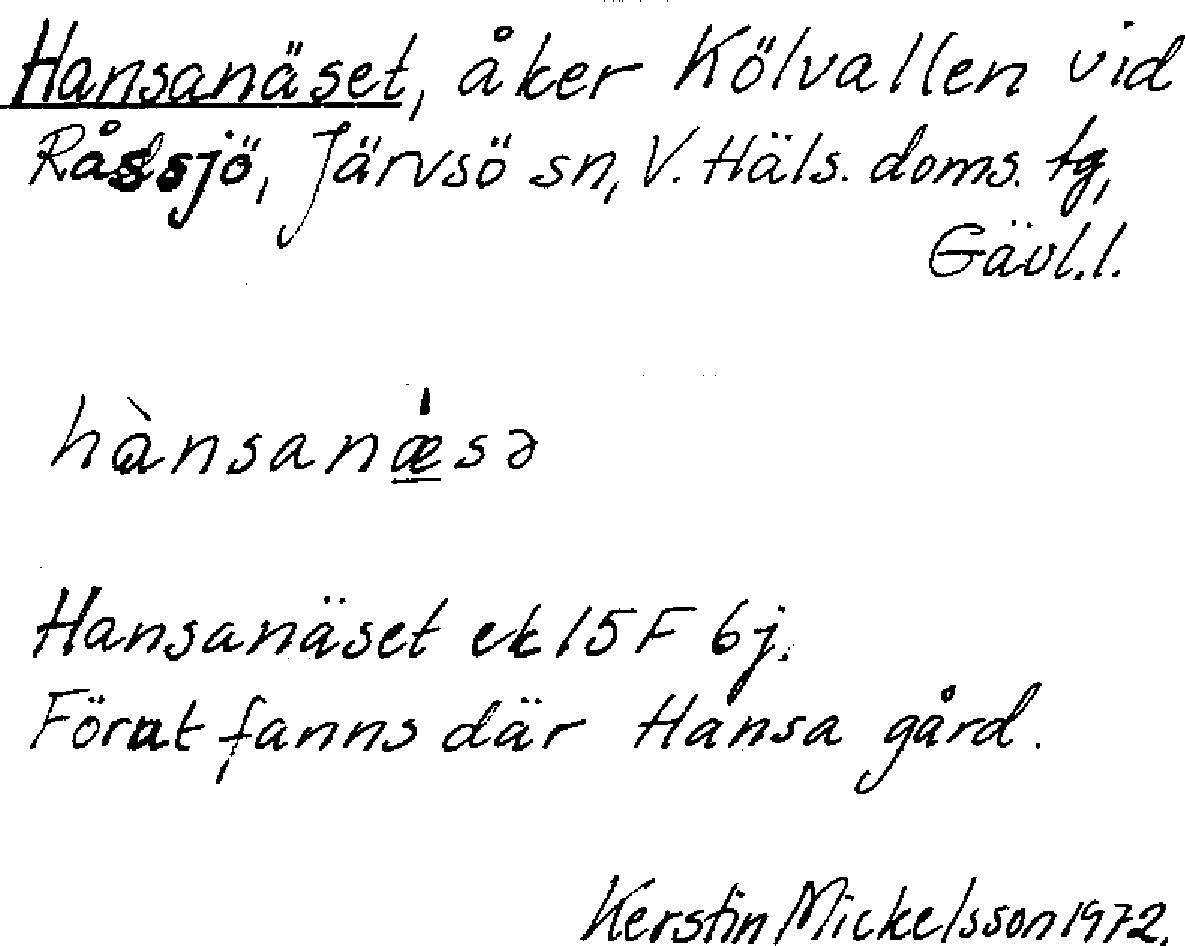 Hansanäset, åker Kölvallen vid
Råssjö, Järvsö sn, V. Häls. doms. tg,
Gävl.l.
hànsanǽsə
Hansanäset ek 15 F 6j.
Förut fanns där Hansa gård.
Kerstin Mickelsson 1972.